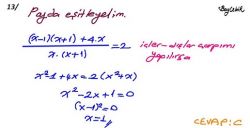 13/ Payda eşitleyelim.
(x-1)(x+1) + 4.x / x.(x+1) = 2 içler-dışlar çarpımı yapılırsa
x²-1+4x = 2(x²+x)
x²-2x+1=0
(x-1)²=0
x=1
CEVAP: C